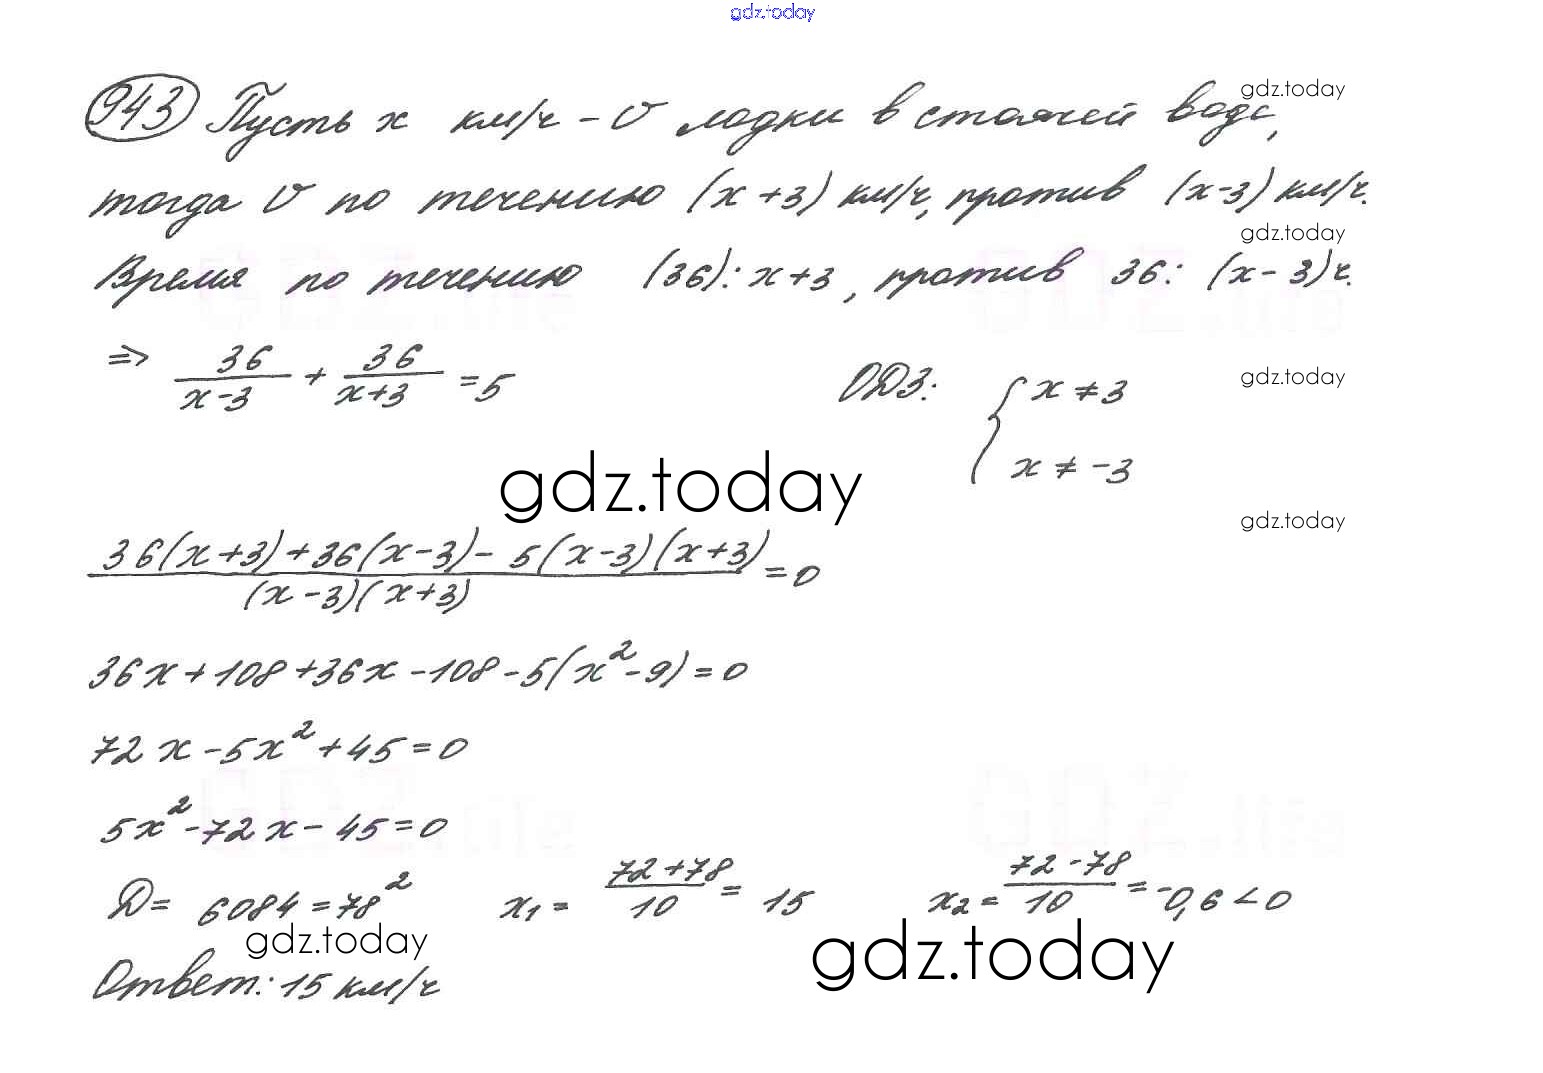 gdz.today
943 Пусть x км/ч - v лодки в стоячей воде, gdz.today
тогда v по течению (x+3) км/ч, против (x-3) км/ч.
gdz.today
Время по течению (36): x+3, против 36: (x-3) ч.
GDZ.life GDZ.life
⇒ 36/(x-3) + 36/(x+3) = 5 ОДЗ: { x ≠ 3 gdz.today
x ≠ -3
gdz.today
gdz.today
(36(x+3)+36(x-3)-5(x-3)(x+3))/((x-3)(x+3)) = 0
36x+108+36x-108-5(x²-9)=0
72x-5x²+45=0
GDZ.life GDZ.life
5x²-72x-45=0
D= 6084=78² x₁= (72+78)/10 = 15 x₂= (72-78)/10 = -0,6<0
gdz.today gdz.today
Ответ: 15 км/ч